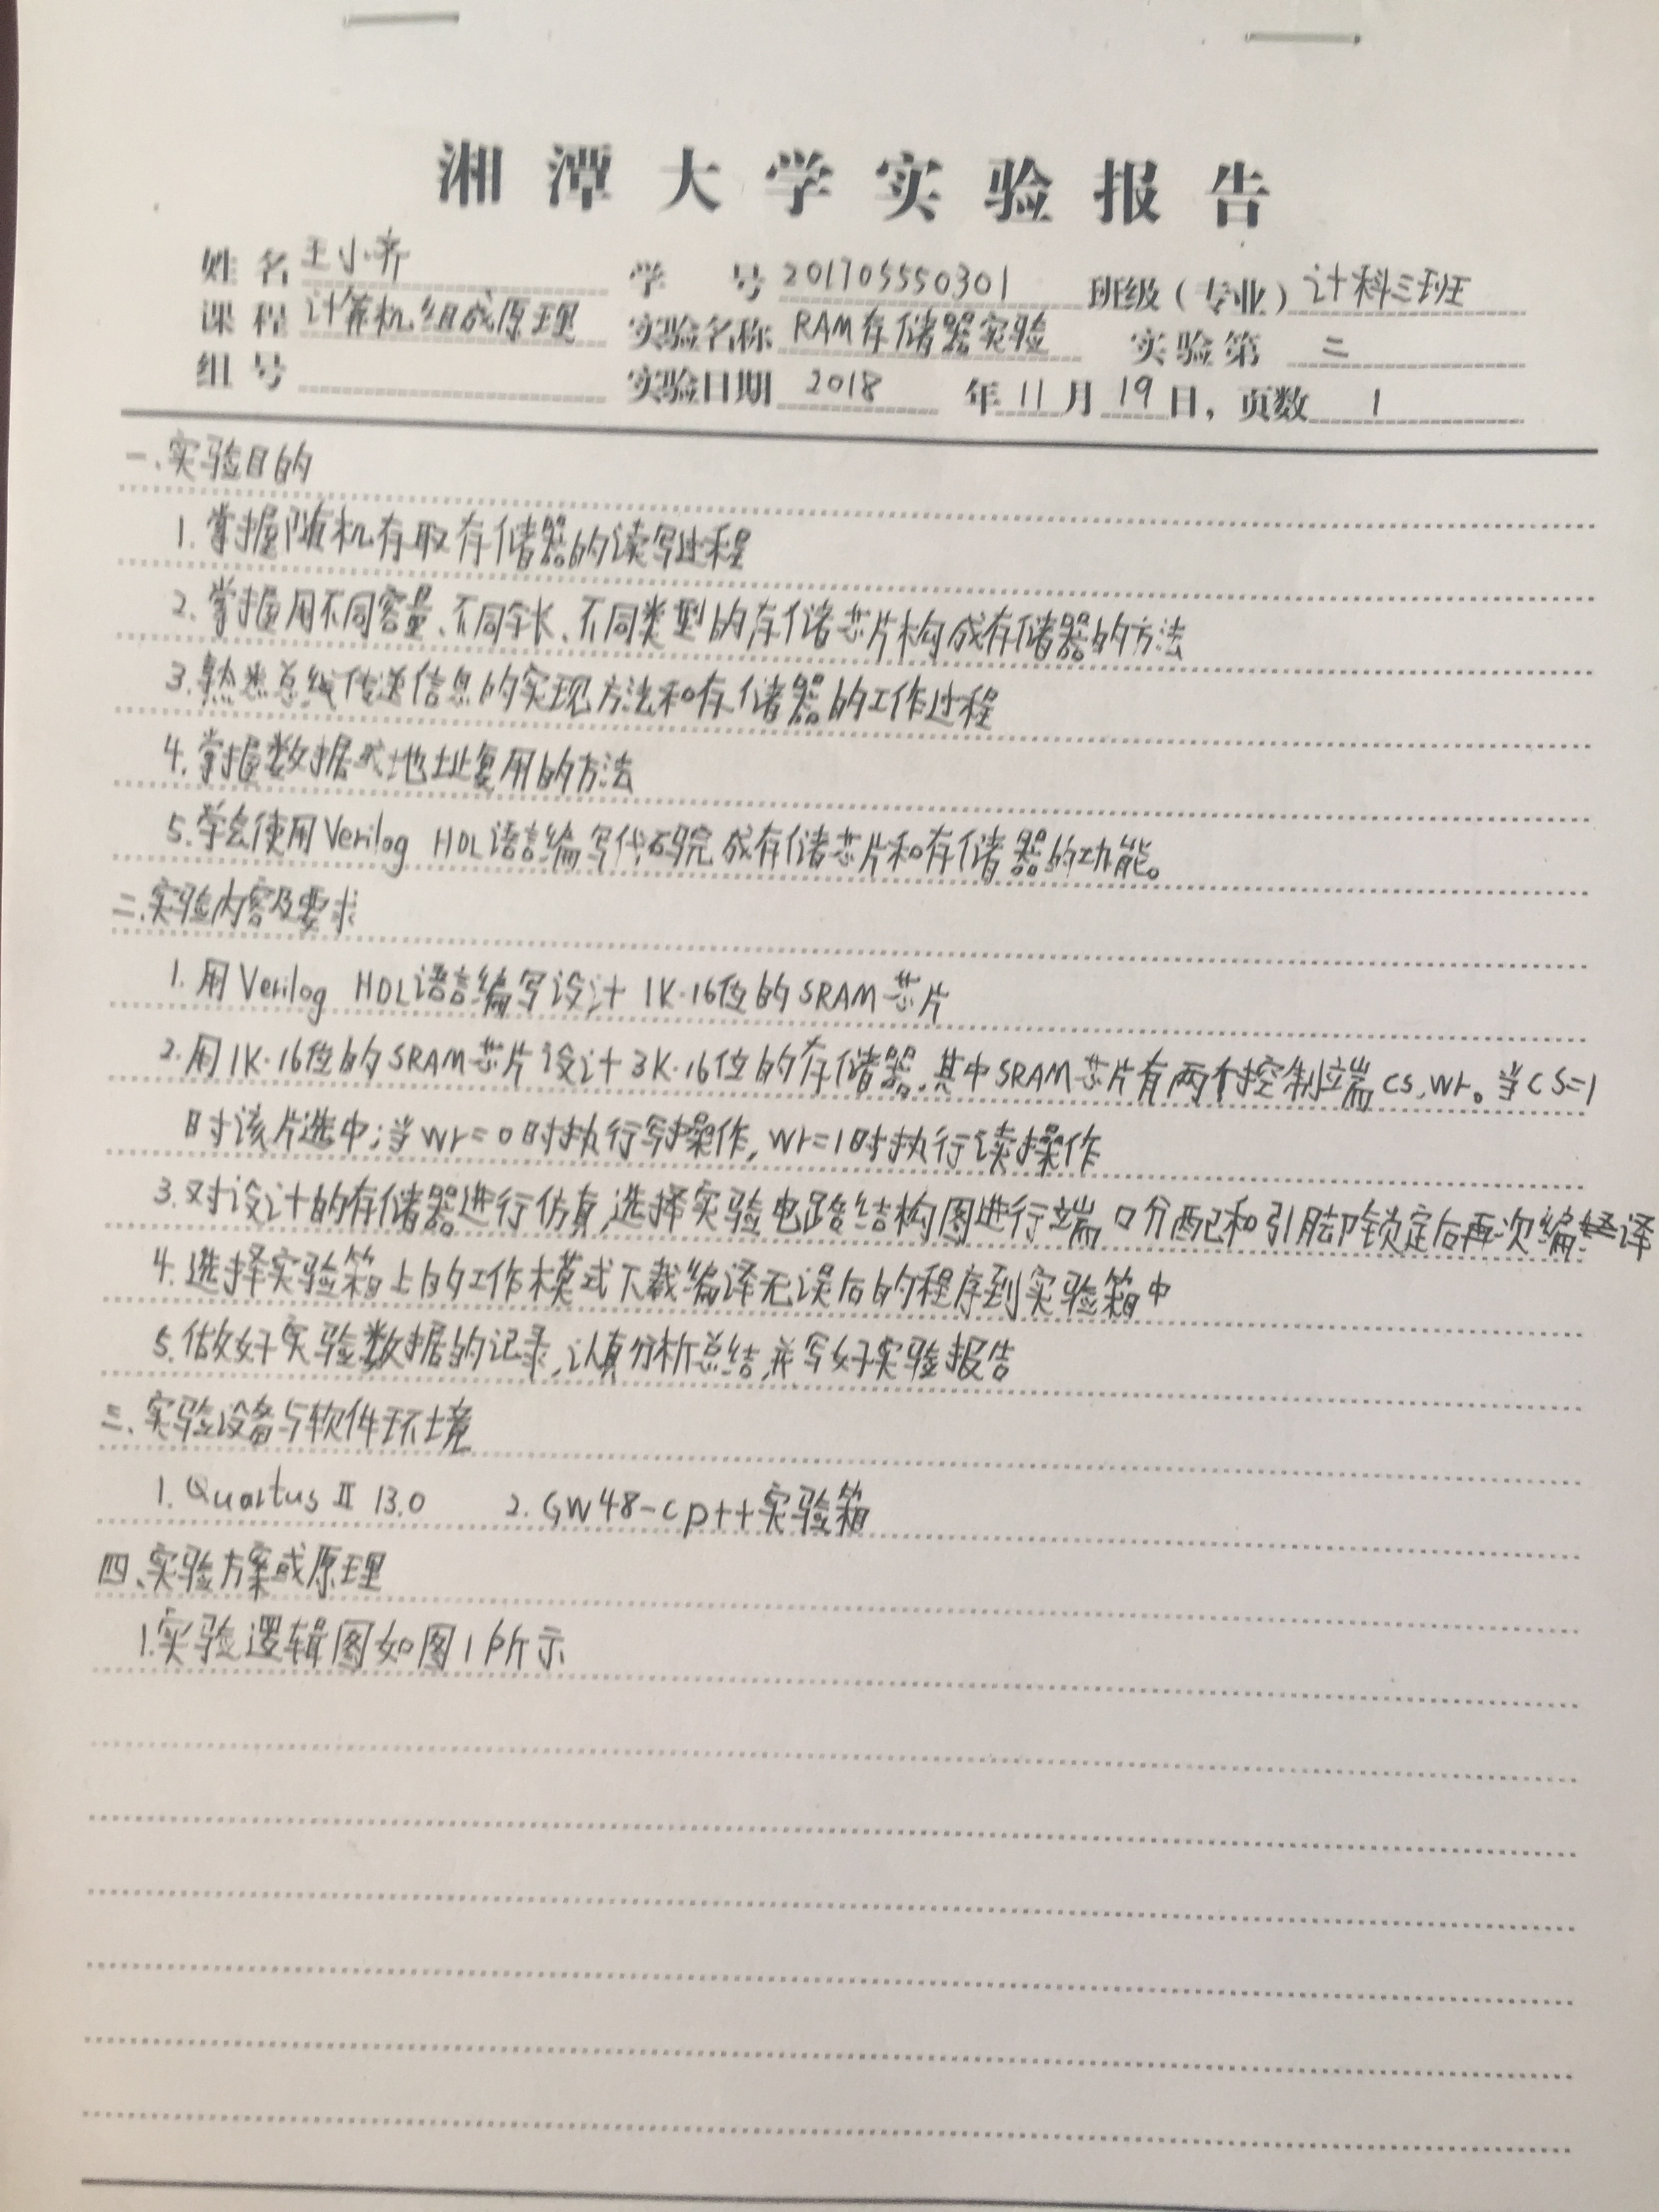 湘潭大学实验报告
姓名 王小齐 学号 201705550301 班级（专业） 计科三班
课程 计算机组成原理 实验名称 RAM存储器实验 实验第 二
组号 实验日期 2018 年 11 月 19 日，页数 1
一、实验目的
1. 掌握随机存取存储器的读写过程
2. 掌握用不同容量、不同字长、不同类型的存储芯片构成存储器的方法
3. 熟悉总线传送信息的实现方法和存储器的工作过程
4. 掌握数据或地址复用的方法
5. 学会使用Verilog HDL语言编写代码完成存储芯片和存储器的功能。
二、实验内容及要求
1. 用Verilog HDL语言编写设计 1K·16位的SRAM芯片
2. 用1K·16位的SRAM芯片设计3K·16位的存储器,其中SRAM芯片有两个控制端cs、wr。当cs=1
时该片选中;当wr=0时执行写操作,wr=1时执行读操作
3. 对设计的存储器进行仿真,选择实验电路结构图进行端口分配和引脚锁定后再次编译
4. 选择实验箱上的工作模式下载编译无误后的程序到实验箱中
5. 做好实验数据的记录,认真分析总结,并写好实验报告
三、实验设备与软件环境
1. Quartus II 13.0 2. GW48-cp++实验箱
四、实验方案或原理
1. 实验逻辑图如图1所示